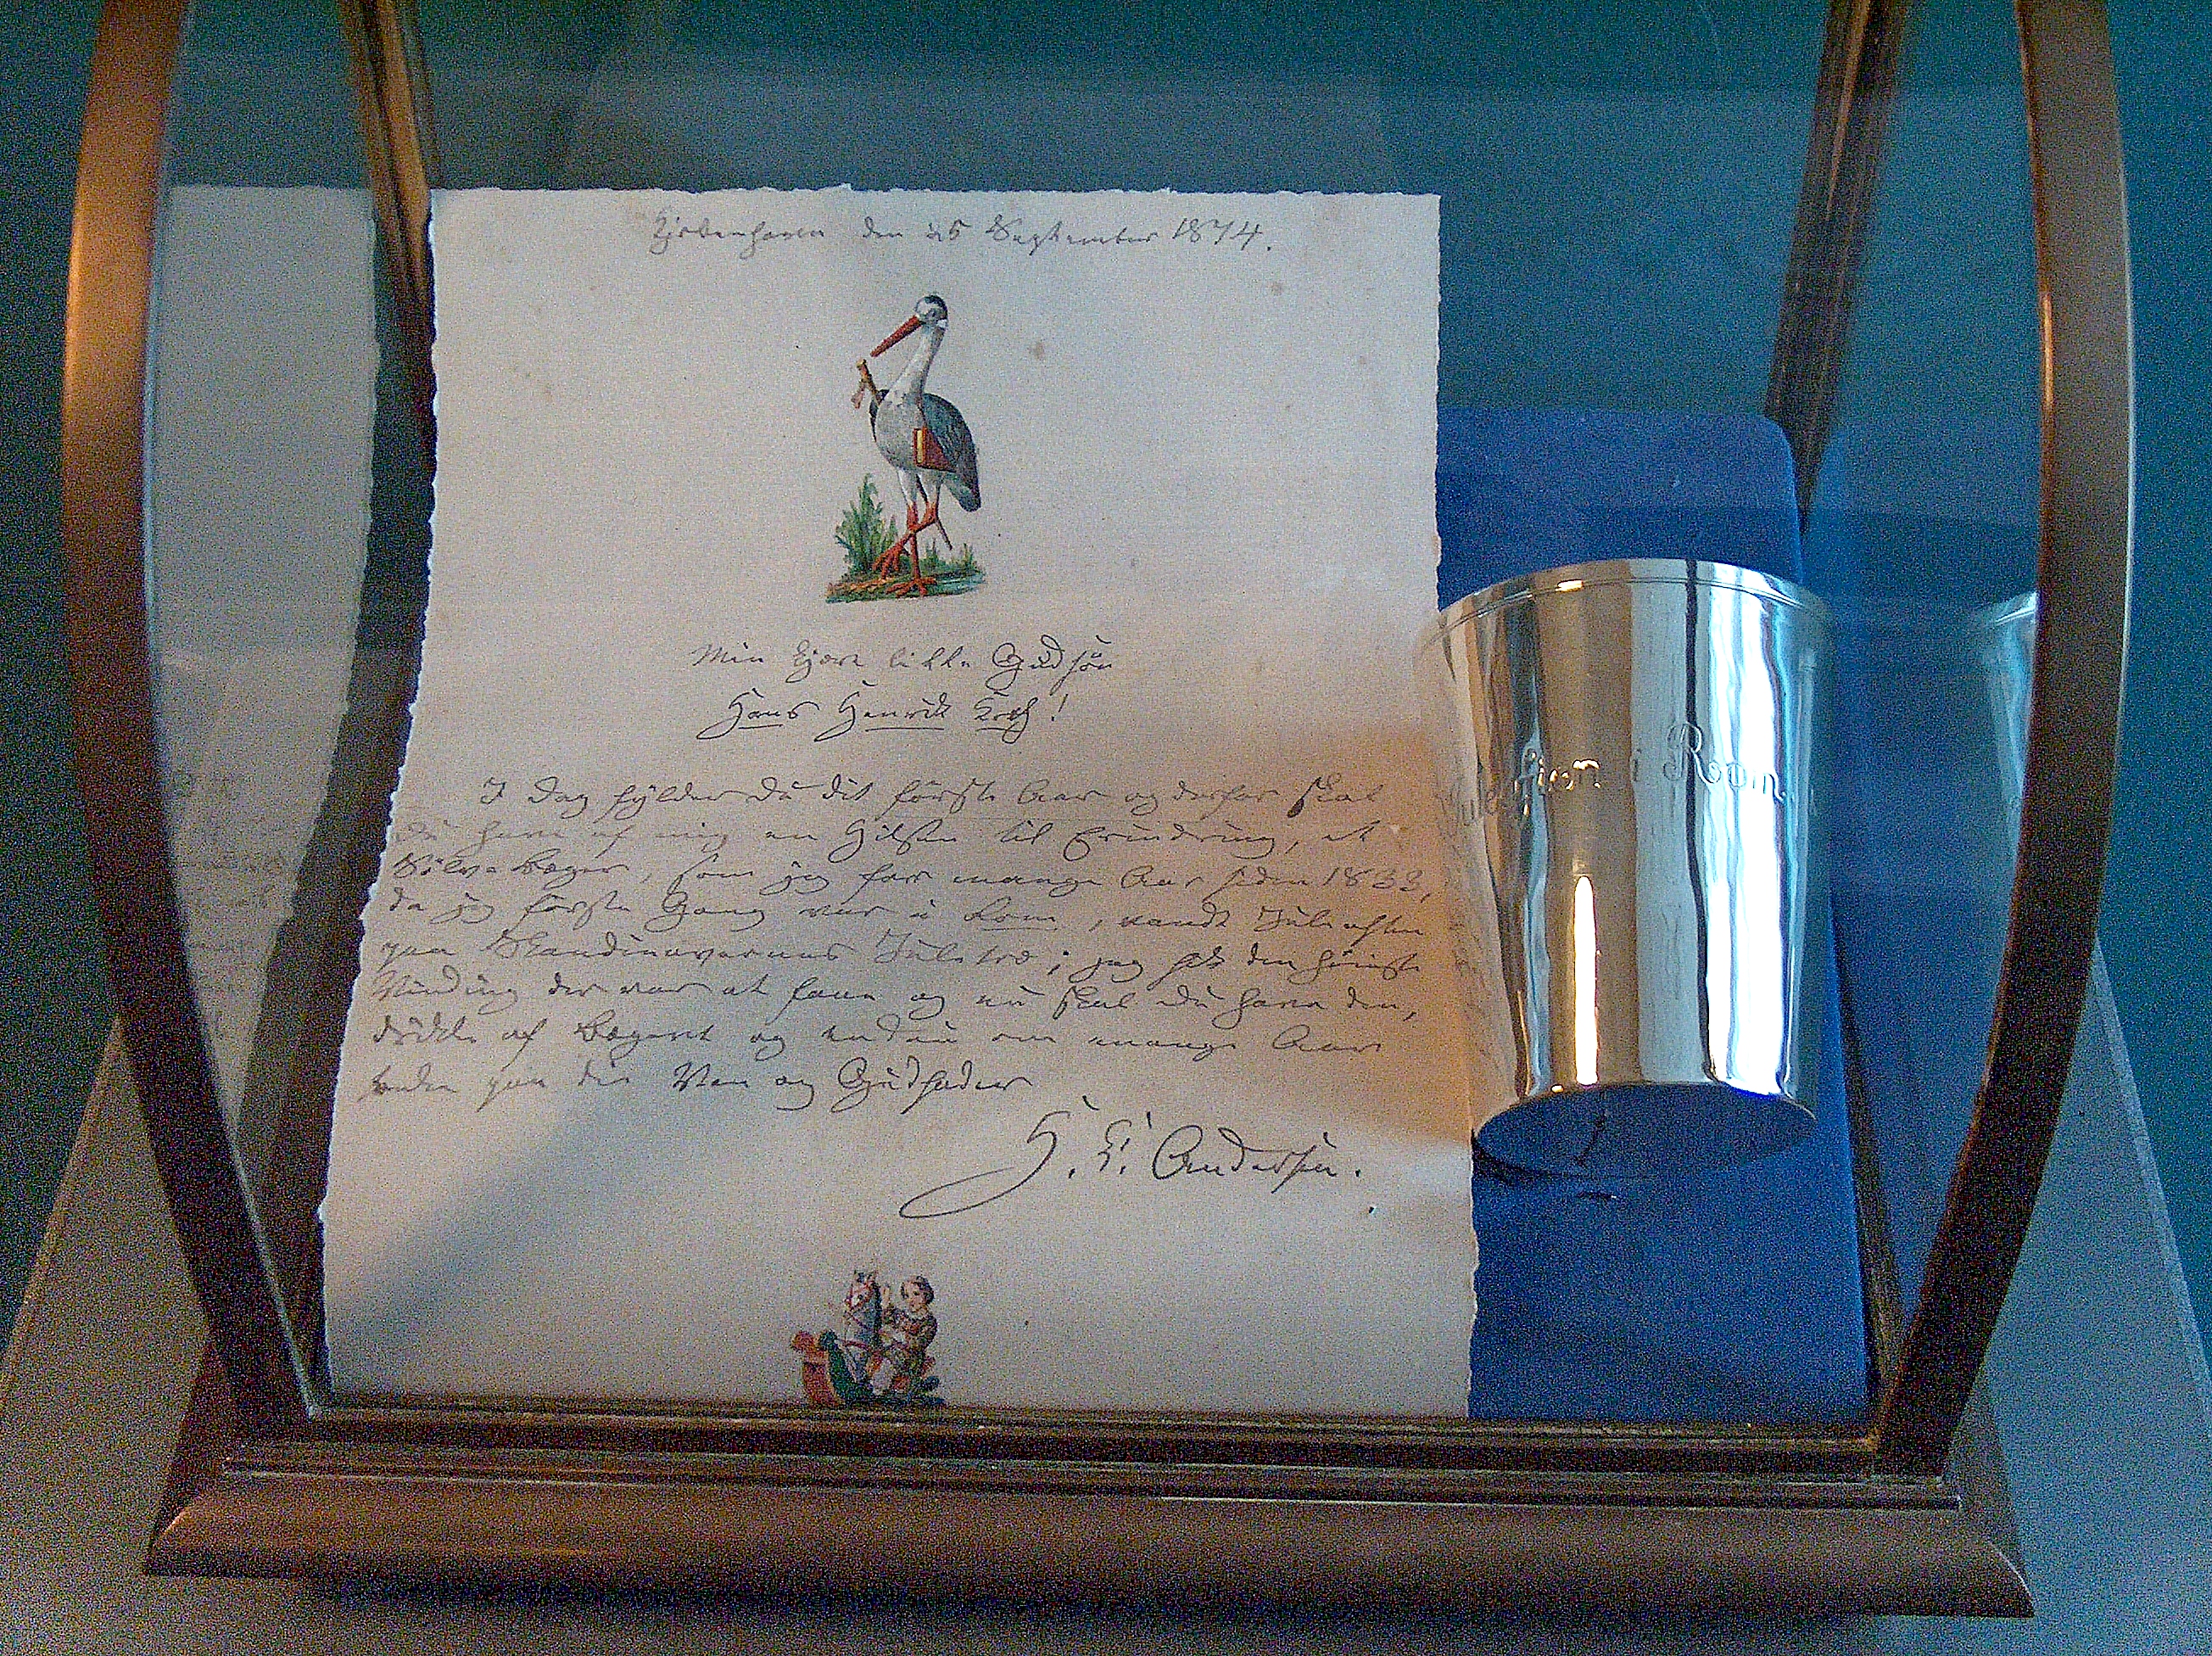 Kjøbenhavn den 25 September 1874.
Min kjære lille Gudsøn
Hans Henrik Koch!
I Dag fylder Du dit første Aar og derfor skal
Du have af mig en Hilsen til Erindring, et
Sølv-Bæger, som jeg for mange Aar siden 1833,
da jeg første Gang var i Rom, vandt Juleaften
paa Skandinavernes Juletræ; jeg fik den
Vinding der var at faae og nu skal Du have den,
drikke af Bægeret og endnu om mange Aar
tænke paa din Ven og Gudfader
H. C. Andersen.
i Rom